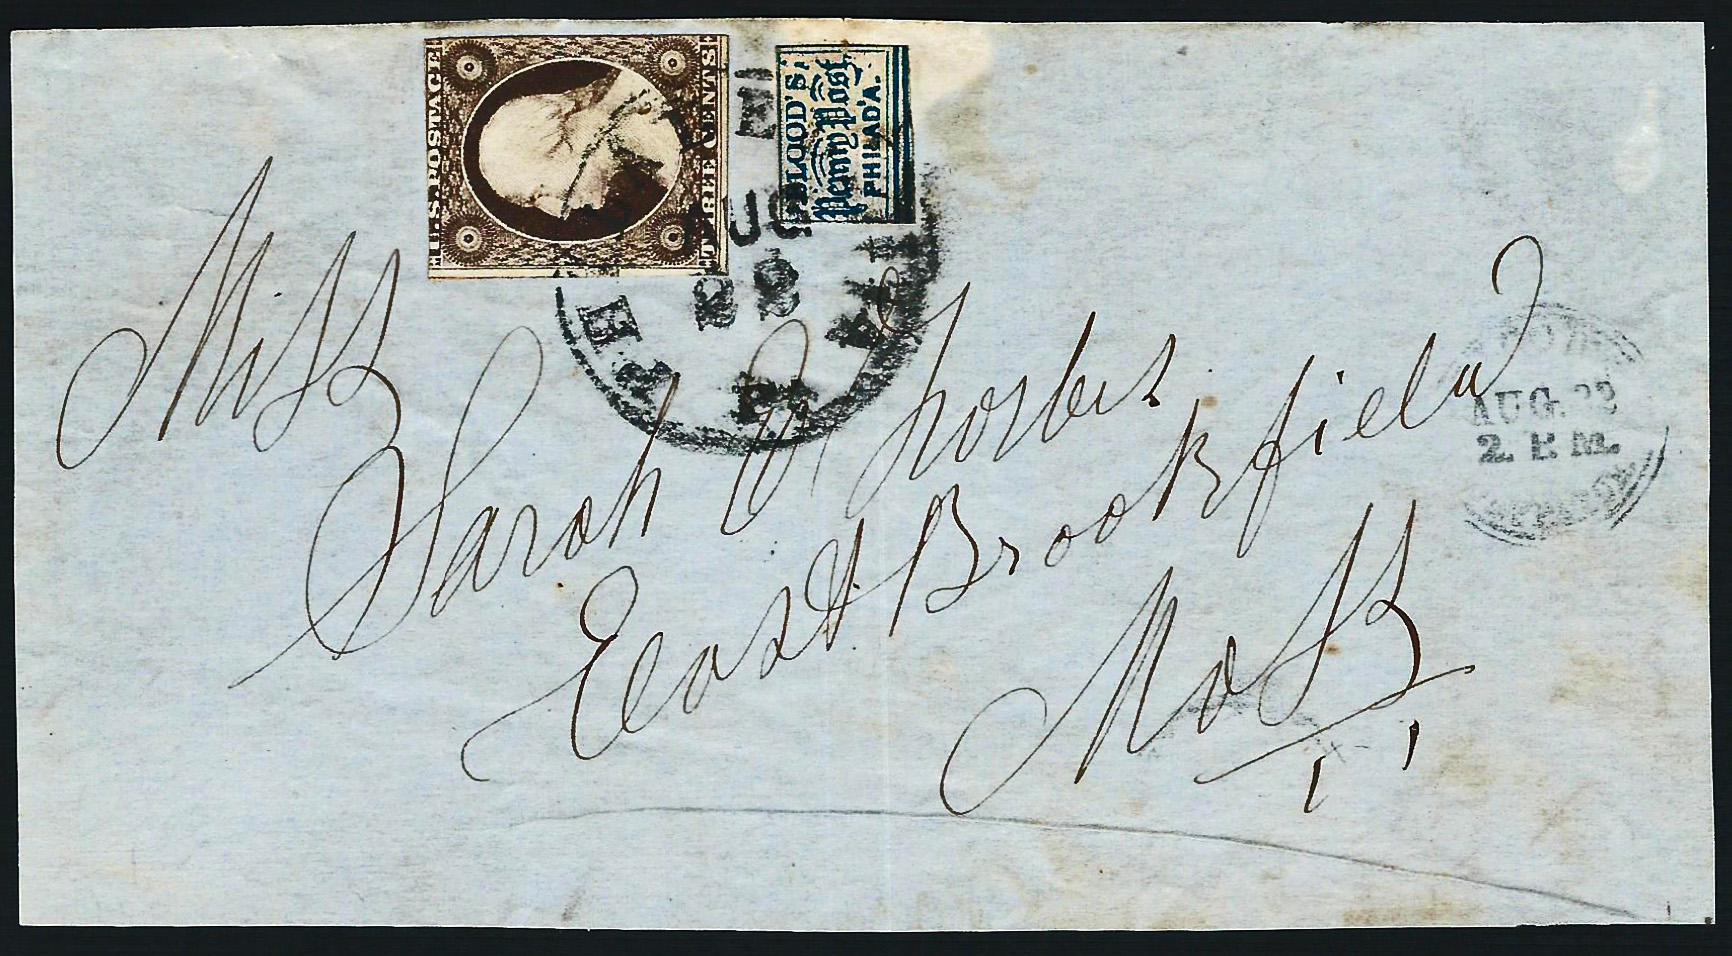 U.S. POSTAGE
THREE CENTS
BLOOD'S
Penny Post
PHILAD'A.
AUG
22
PHILA
Pa
AUG. 22
2. P.M.
Miss
Sarah D Forbes
East Brookfield
Mass